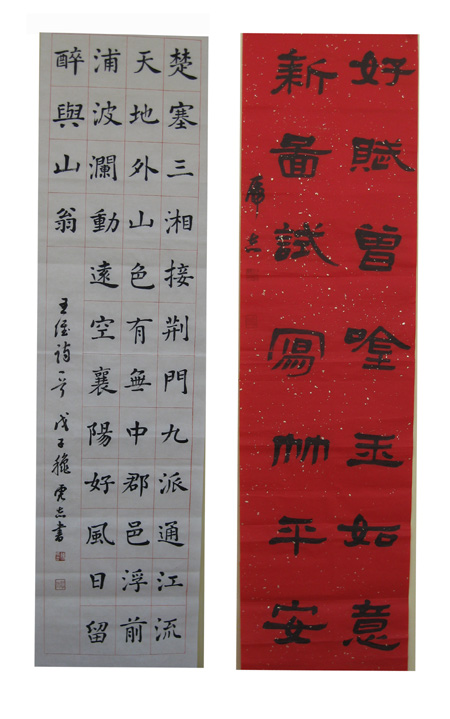 楚塞三湘接荊門九派通江流
天地外山色有無中郡邑浮前
浦波瀾動遠空襄陽好風日留
醉與山翁
王維詩一首 戊子穐
好賦曾唫玉如意
新啚試寫竹平安